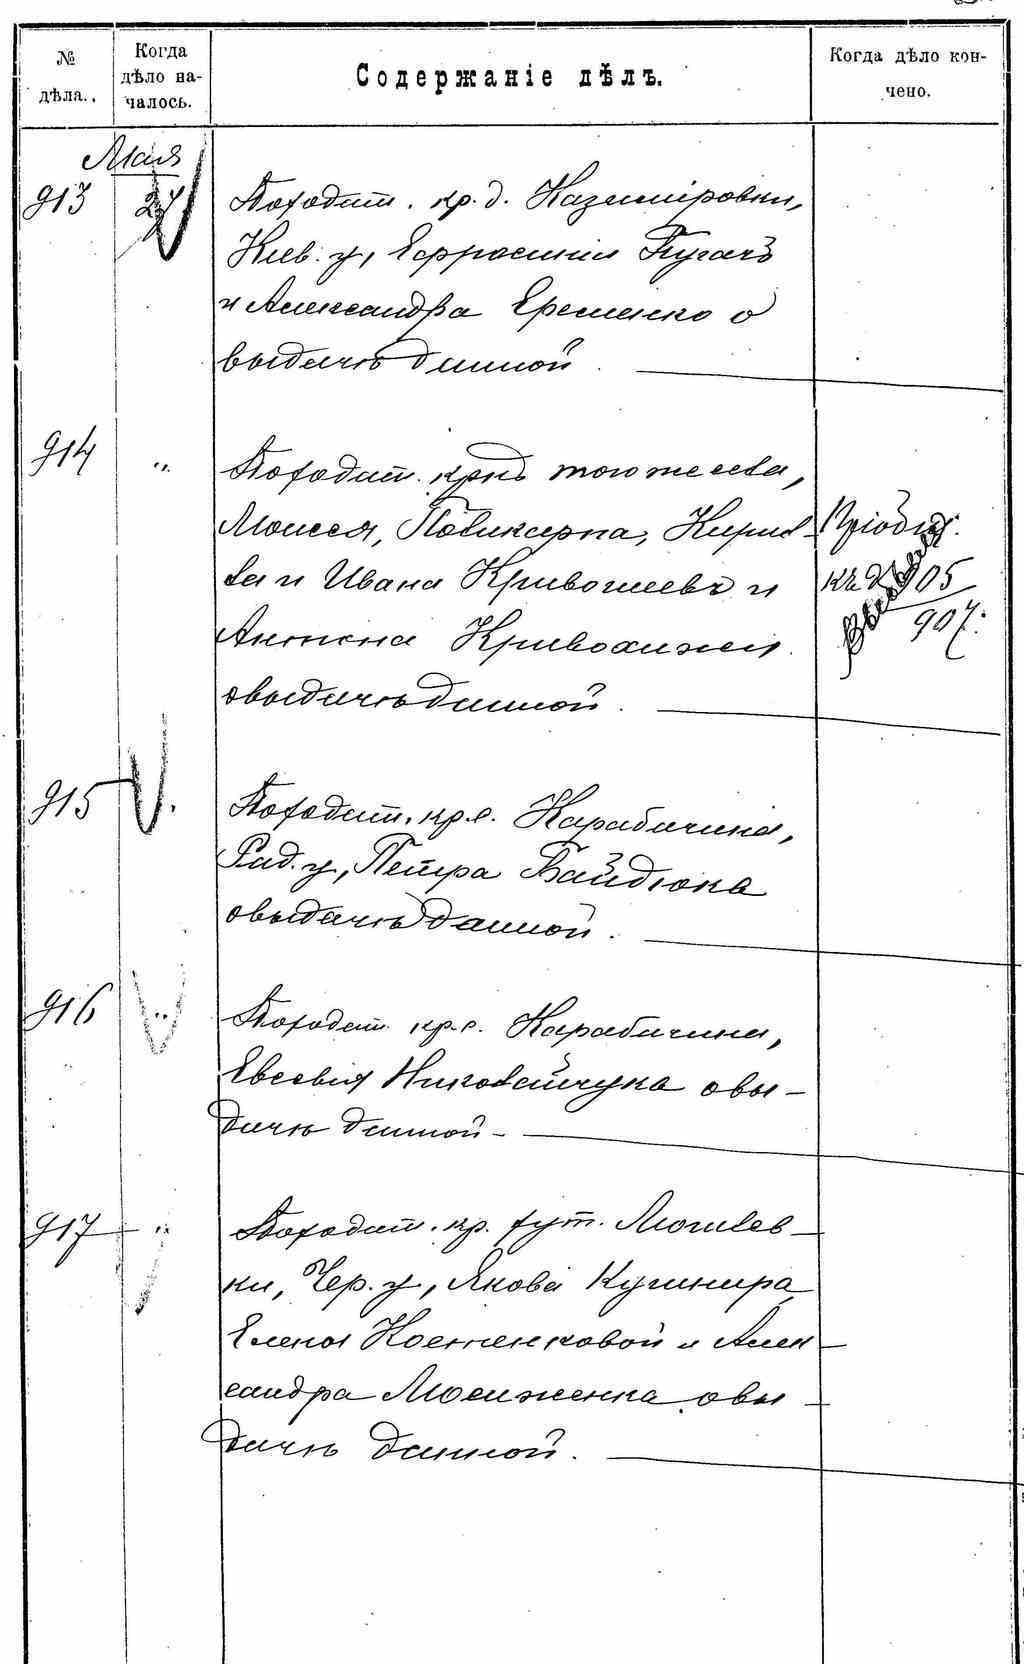 № дѣла.
Когда дѣло на-
чалось.
Содержаніе дѣлъ.
Когда дѣло кон-
чено.
Мая
913 27 По ходат. кр. д. Казимировки,
Кіев. у, Ефросиніи Пугачъ
и Александра Еременко о
выдачѣ данной.
914 " По ходат. крнъ того же села,
Моисея, Поликарпа, Кирил-
ла и Ивана Кривошеевъ и
Антона Кривохижи
о выдачѣ данной.
Пріобщ.
къ д 905
907.
915 По ходат. кр. с. Карабачина,
Рад. у, Петра Байдюка
о выдачѣ данной.
916 " По ходат. кр. с. Карабачина,
Евсевія Николайчука о вы-
дачѣ данной -
917 " По ходат. кр. хут. Могилев-
ки, Чер. у, Якова Кушнира
Елены Костенковой и Алек-
сандра Мосиженка о вы-
дачѣ данной.